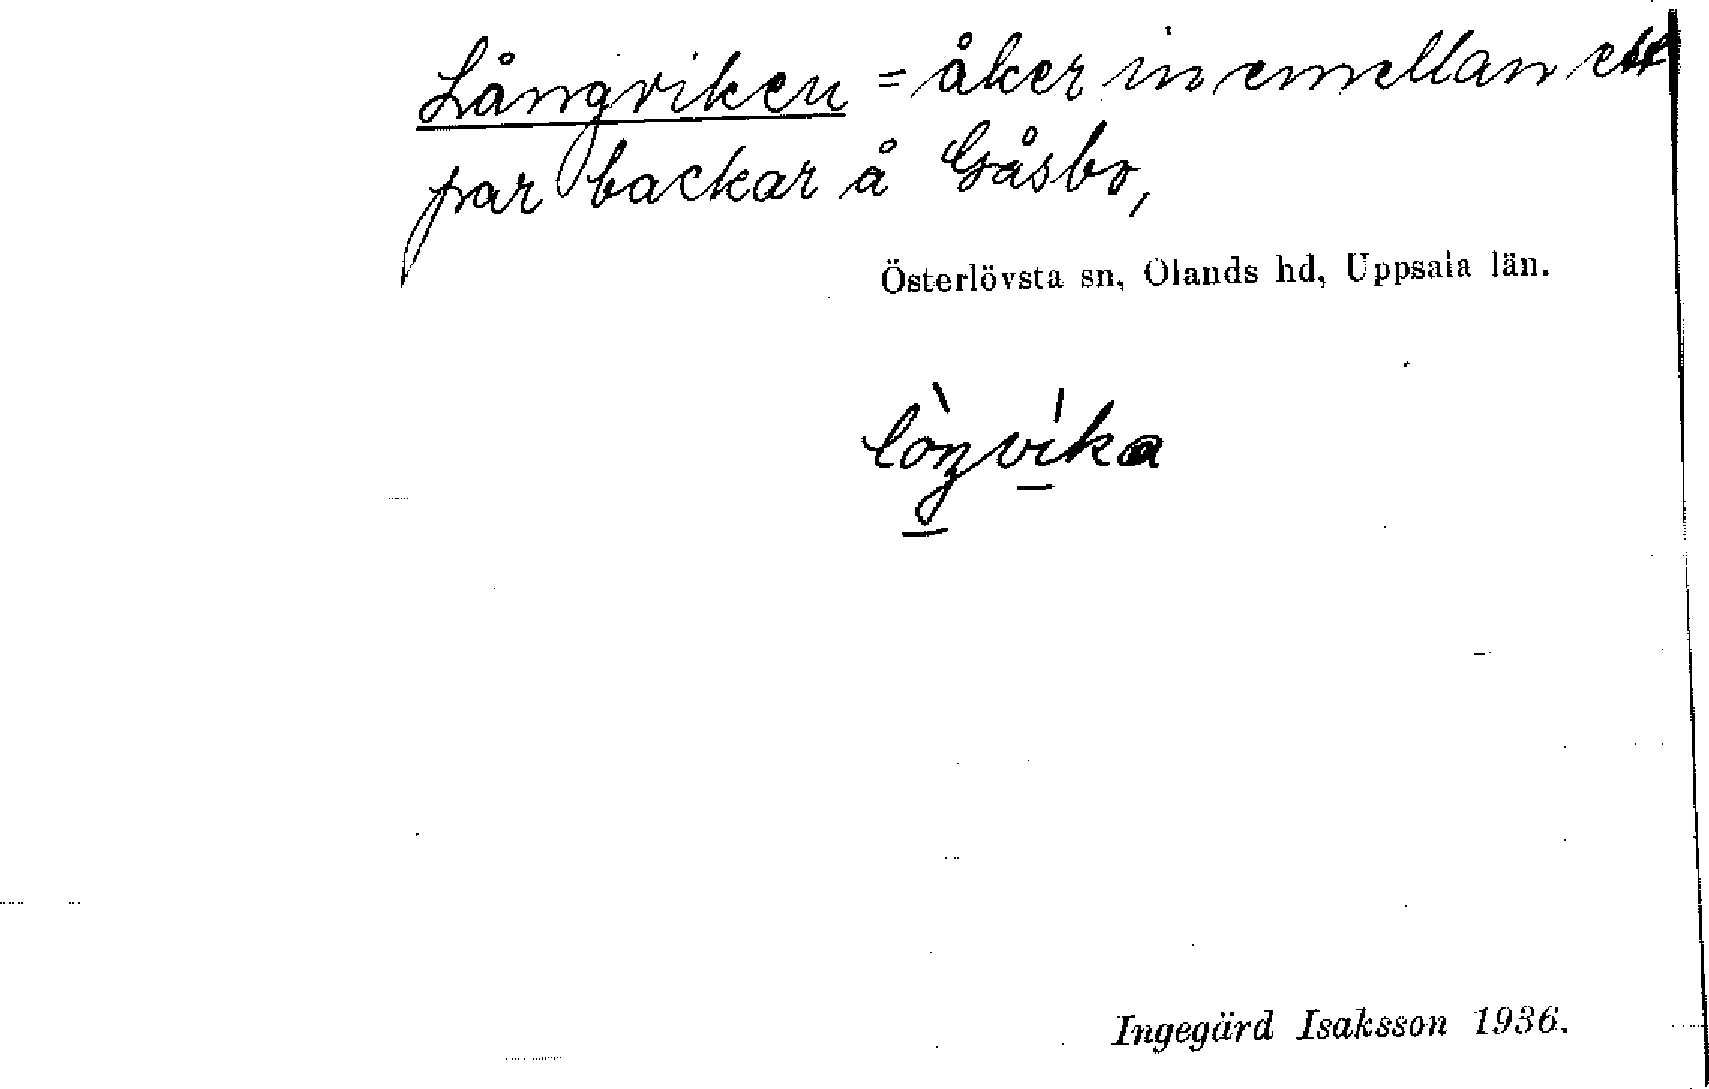 Långviken = åker in emellan ett
par backar å Gåsbo,
Österlövsta sn, Olands hd, Uppsala län.
lòŋvíka
Ingegärd Isaksson 1936.